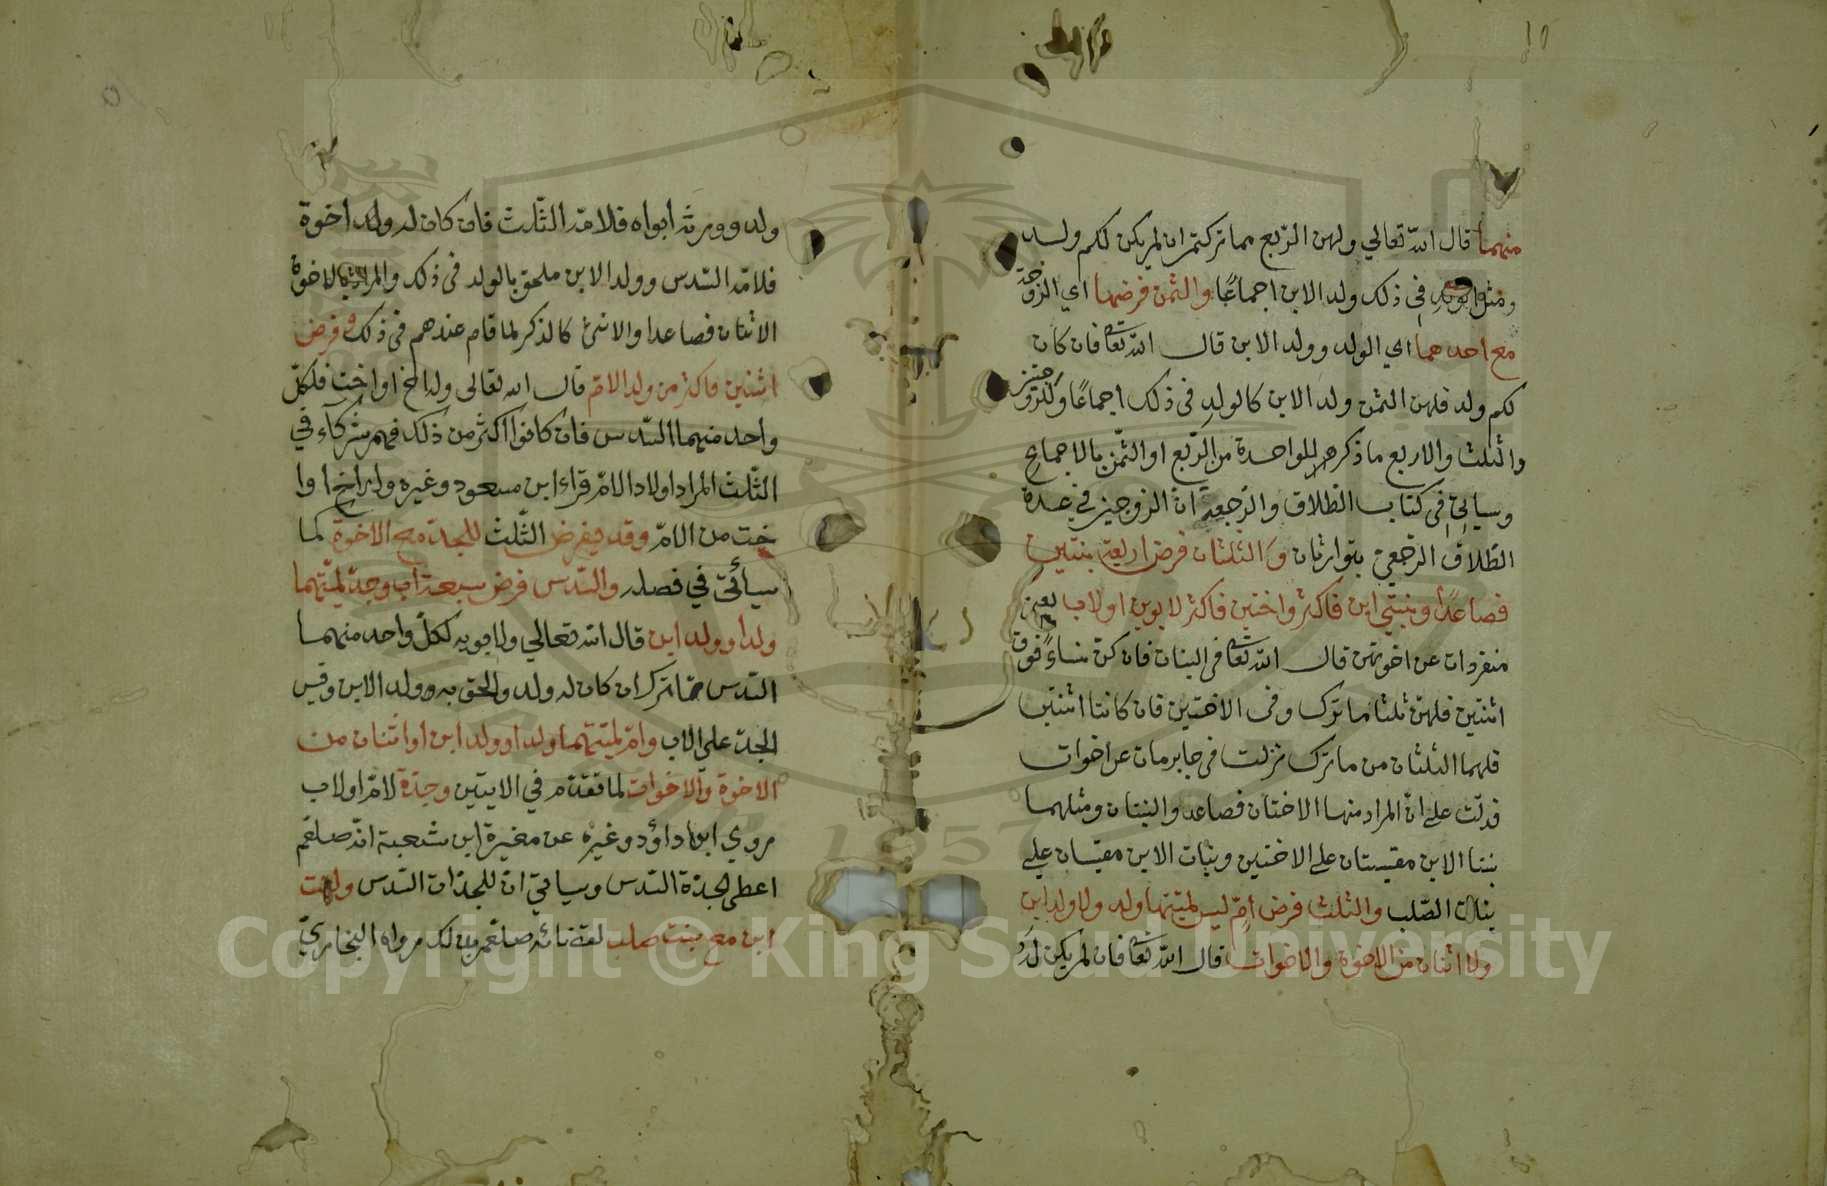 منهما قال الله تعالي ولهن الربع مما تركتم ان لم يكن لكم ولد
في ذلك ولد الابن اجماعًا والثمن فرضها اي الزوجة
مع احدهما اي الولد وولد الابن قال الله تعا فان كان
لكم ولد فلهن الثمن ولد الابن كالولد في ذلك اجماعًا وللزوجتين
والثلث والاربع ما ذكر للواحدة من الربع او الثمن بالاجماع
وسياتي في كتاب الطلاق والرجعة ان الزوجين في عدة
الطلاق الرجعي يتوارثان والثلثان فرض اربعة بنتين
فصاعدًا وبنتي ابن فاكثر واختين فاكثر لابوين او لاب
منفردات عن اخوتهن قال الله تعا في البنات فان كن نساءً فوق
اثنتين فلهن ثلثا ما ترك وفي الاختين فان كانتا اثنتين
فلهما الثلثان من ما ترك نزلت في جابر مات عن اخوات
فدلت علي ان المراد منها الاختان فصاعدا والبنتان ومثلهما
بنتا الابن مقيستان علي الاختين وبنات الابن مقيسان علي
بنات الصلب والثلث فرض ام ليس لميتها ولد ولا ولد ابن
ولا اثنان من الاخوة والاخوات قال الله تعا فان لم يكن له
ولد وورثه ابواه فلامه الثلث فان كان له ولد اخوة
فلامه السدس وولد الابن ملحق بالولد في ذلك والمراد بالاخوة
الاثنان فصاعدا والانثى كالذكر لما قام عندهم في ذلك وفرض
اثنين فاكثر من ولد الام قال الله تعالى وله اخ او اخت فلكل
واحد منهما السدس فان كانوا اكثر من ذلك فهم شركاء في
الثلث المراد اولاد الام قراء ابن مسعود وغيره وله اخ او ا
خت من الام وقد يفرض الثلث للجد مع الاخوة كما
سيأتي في فصله والسدس فرض سبعة اب وجد لميتهما
ولد او ولد ابن قال الله تعالي ولابويه لكل واحد منهما
السدس مما ترك ان كان له ولد والحق به وولد الابن وقيس
الجد على الاب وام لميتها ولد او ولد ابن او اثنان من
الاخوة والاخوات لما تقدم في الايتين وجدة لام او لاب
روي ابوا داؤد وغيره عن مغيرة ابن شعبة انه صلعم
اعطى الجدة السدس وسياتي ان للجدات السدس ولبنت
ابن مع بنت صلب لقضائه صلعم بذلك رواه البخاري
Copyright © King Saud University
1957